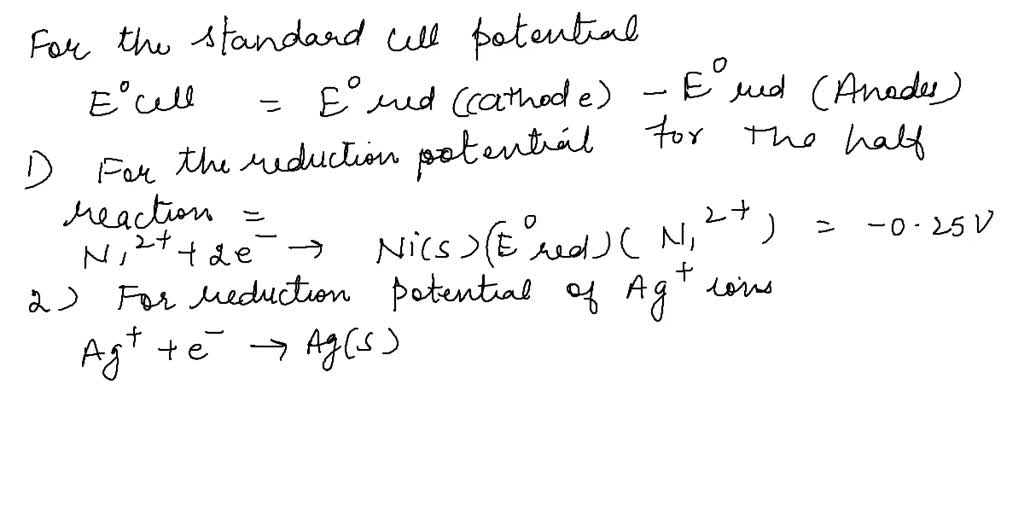 For the standard cell potential
E°cell = E°red (cathode) - E°red (Anodes)
1) For the reduction potential for the half
reaction =
Ni²⁺ + 2e⁻ → Ni(s) (E°red) (Ni²⁺) = -0.25V
2) For reduction potential of Ag⁺ ions
Ag⁺ + e⁻ → Ag(s)